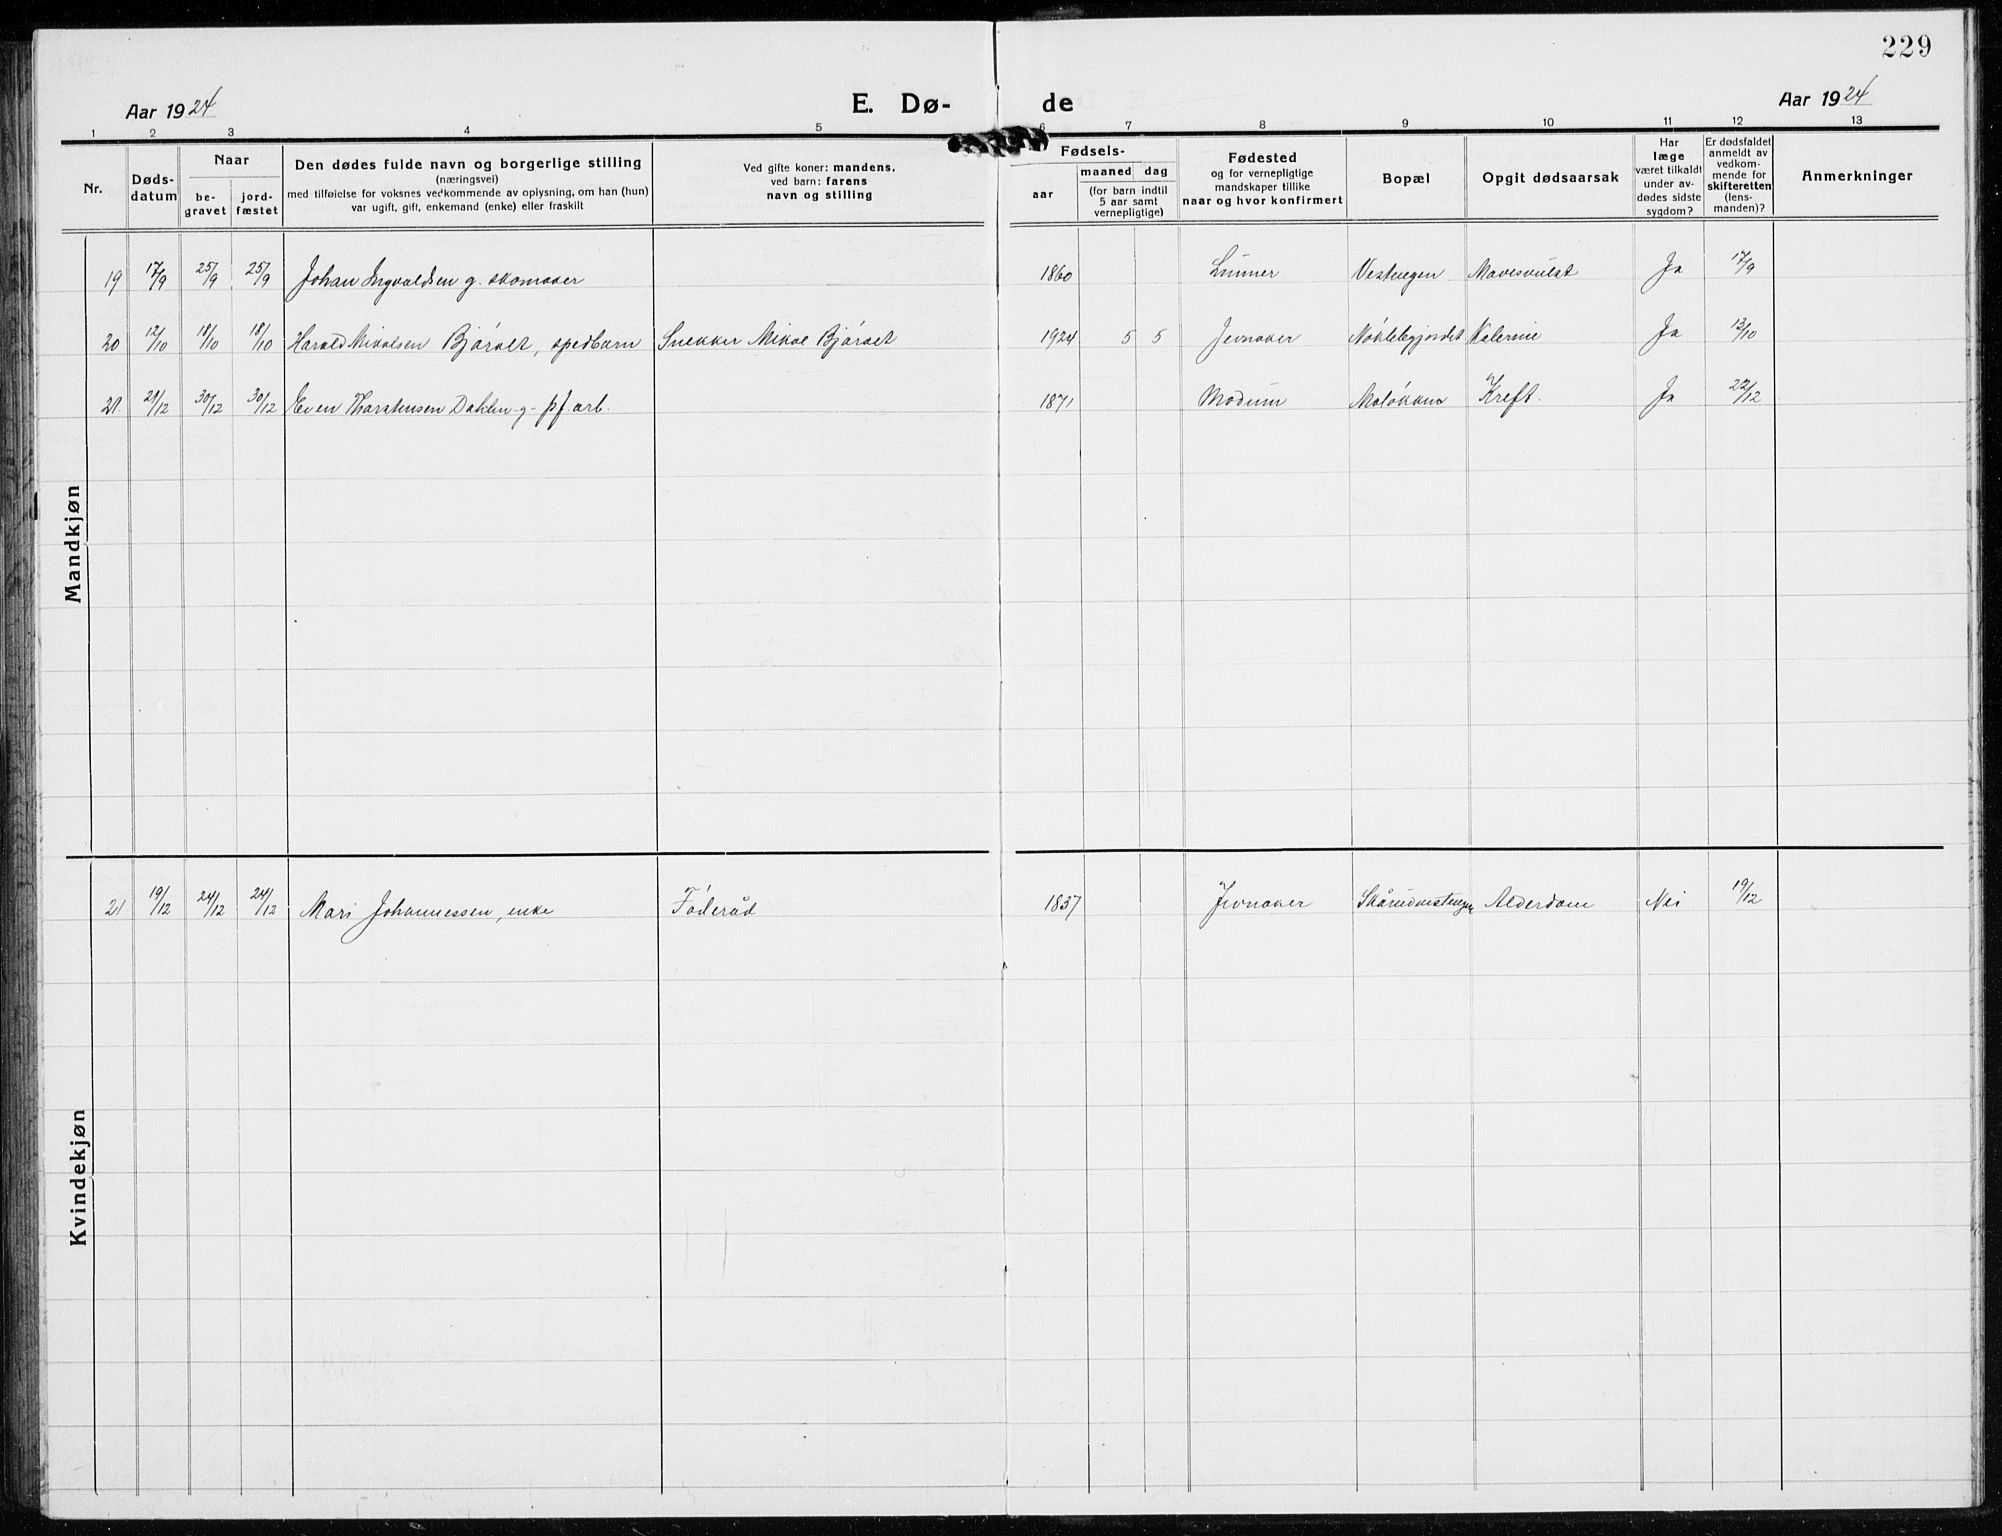 229
Aar 1924 E. Dø- de Aar 1924
1 2 3 4 5 6 7 8 9 10 11 12 13
Nr.
Døds-
datum
Naar
be-
gravet
jord-
fæstet
Den dødes fulde navn og borgerlige stilling
(næringsvei)
med tilføielse for voksnes vedkommende av oplysning, om han (hun)
var ugift, gift, enkemand (enke) eller fraskilt
Ved gifte koner: mandens,
ved barn: farens
navn og stilling
Fødsels-
aar
maaned dag
(for barn indtil
5 aar samt
vernepligtige)
Fødested
og for vernepligtige
mandskaper tillike
naar og hvor konfirmert
Bopæl
Opgit dødsaarsak
Har
læge
været tilkaldt
under av-
dødes sidste
sygdom?
Er dødsfaldet
anmeldt av
vedkom-
mende for
skifteretten
(lens-
manden)?
Anmerkninger
Mandkjøn
19 17/9 25/9 25/9 Johan Ingvaldsen g. skomaker 1860 Lunner Vestvegen Mavesvulst Ja 17/9
20 12/10 18/10 18/10 Harald Mikalsen Bjørket, spedbarn Snekker Mikal Bjørket 1924 5 5 Jevnaker Nøklebyjordet Kolerine Ja 13/10
21. 21/12 30/12 30/12 Even Thorstensen Dahlen g. pf. arb. 1871 Modum Moløkken Kreft. Ja 22/12
Kvindekjøn
21 19/12 24/12 24/12 Mari Johannessen, enke Føderåd 1837 Jevnaker Alderdom Nei 19/12